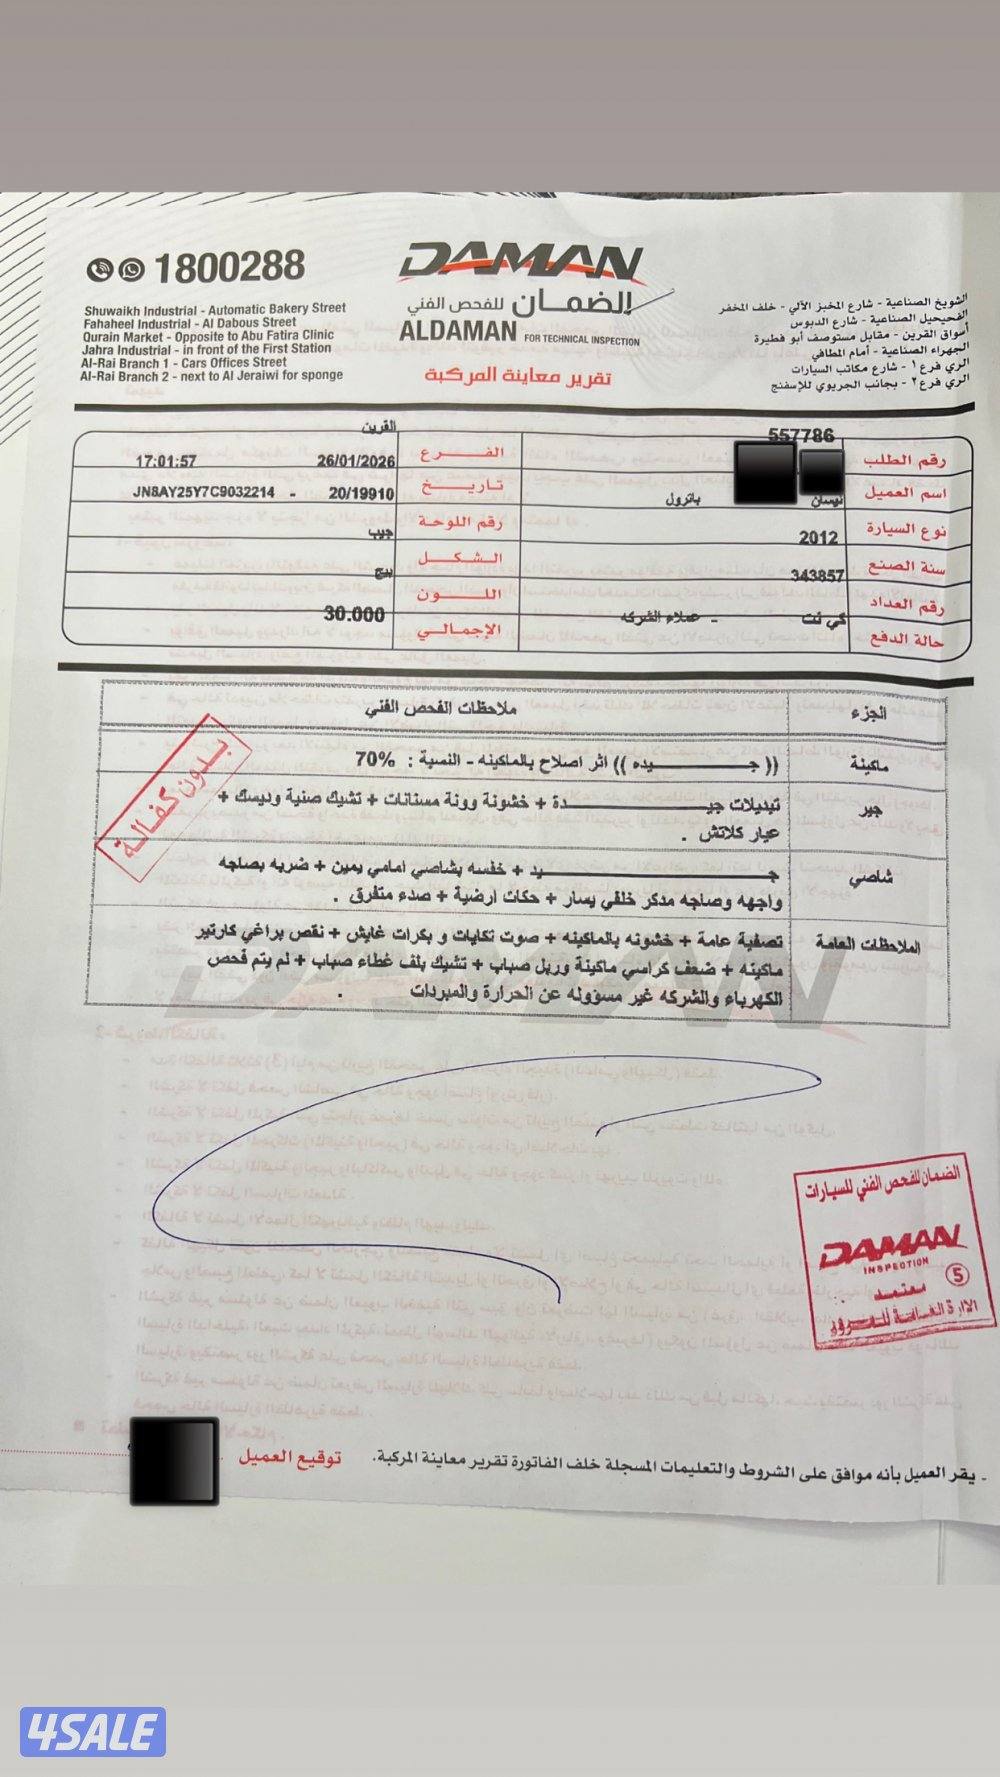 1800288
Shuwaikh Industrial - Automatic Bakery Street
Fahaheel Industrial - Al Dabous Street
Qurain Market - Opposite to Abu Fatira Clinic
Jahra Industrial - in front of the First Station
Al-Rai Branch 1 - Cars Offices Street
Al-Rai Branch 2 - next to Al Jeraiwi for sponge
DAMAN
الضمان للفحص الفني
ALDAMAN FOR TECHNICAL INSPECTION
تقرير معاينة المركبة
الشويخ الصناعية - شارع المخبز الآلي - خلف المخفر
الفحيحيل الصناعية - شارع الدبوس
أسواق القرين - مقابل مستوصف أبو فطيرة
الجهراء الصناعية - أمام المطافي
الري فرع ١ - شارع مكاتب السيارات
الري فرع ٢ - بجانب الجريوي للإسفنج
رقم الطلب 557786
الفــــرع القرين
اسم العميل
تـاريـــخ 26/01/2026 17:01:57
نوع السيارة نيسان باترول
رقم اللوحة 20/19910 - JN8AY25Y7C9032214
سنة الصنع 2012
الـشـكــل جيب
رقم العداد 343857
اللـــون بيج
حالة الدفع كي نت - عملاء الشركه
الإجمالـي 30.000
الجزء ملاحظات الفحص الفني
ماكينة (( جـــــــــيده )) اثر اصلاح بالماكينه - النسبة : 70%
جير تبديلات جيـــــــــــدة + خشونة وونة مسننات + تشيك صنية وديسك +
عيار كلاتش .
شاصي جــــــــــــــيد + خفسه بشاصي امامي يمين + ضربه بصاجه
واجهه وصاجه مدكر خلفي يسار + حكات ارضية + صدء متفرق .
الملاحظات العامة تصفية عامة + خشونه بالماكينه + صوت تكايات و بكرات غايش + نقص براغي كارتير
ماكينه + ضعف كراسي ماكينة وربل صباب + تشيك بلف غطاء صباب + لم يتم فحص
الكهرباء والشركه غير مسؤوله عن الحرارة والمبردات .
بدون كفالة
الضمان للفحص الفني للسيارات
DAMAN
INSPECTION
5
معتمد
الإدارة العامة للمرور
- يقر العميل بأنه موافق على الشروط والتعليمات المسجلة خلف الفاتورة تقرير معاينة المركبة.
توقيع العميل
4SALE